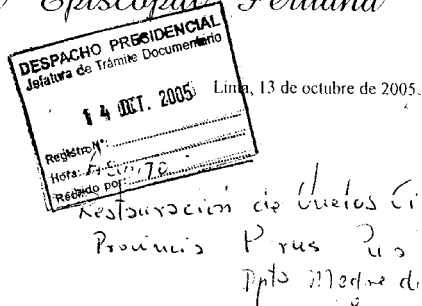 Episcopal Peruana
DESPACHO PRESIDENCIAL
Jefatura de Trámite Documentario
14 OCT. 2005
Registro N°:
Hora:
Recibido por:
Lima, 13 de octubre de 2005.
Restauración de Vuelos
Provincia
Dpto Madre d